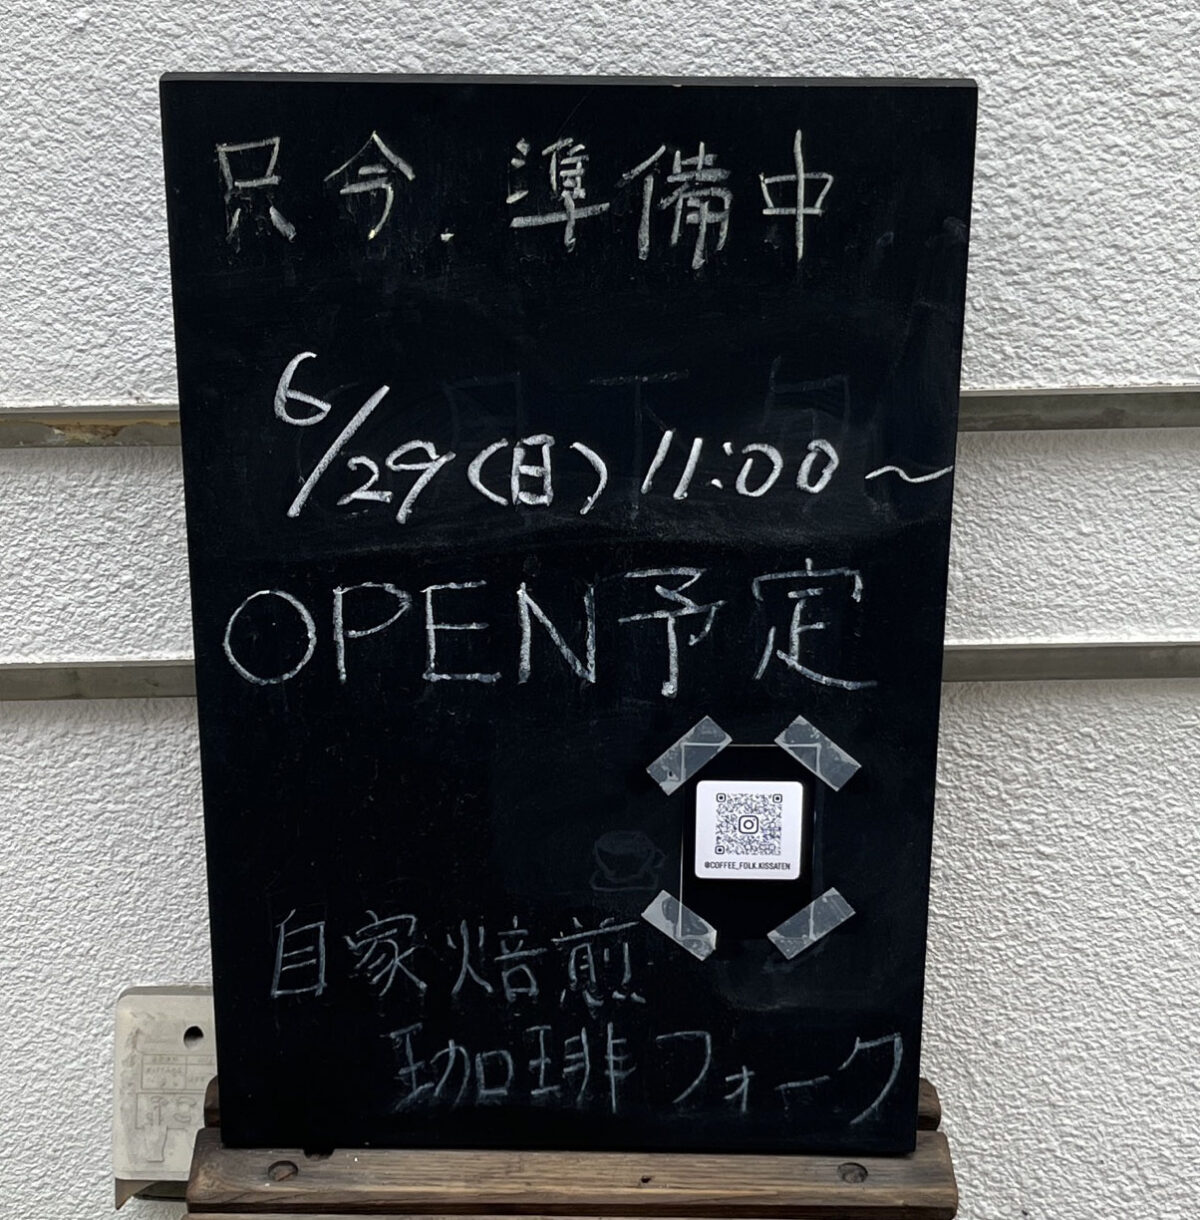 只今.準備中
6/29(日)11:00~
OPEN予定
@COFFEE_FOLK.KISSATEN
自家焙煎
珈琲フォーク